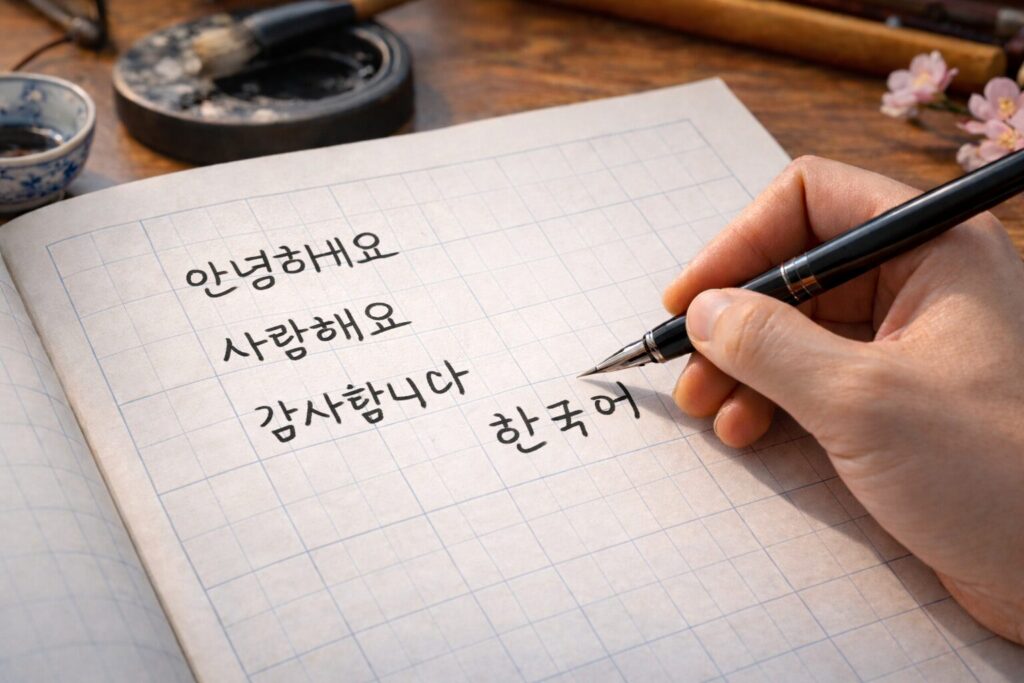 안녕하내요
사람해요
감사합니다
한국어